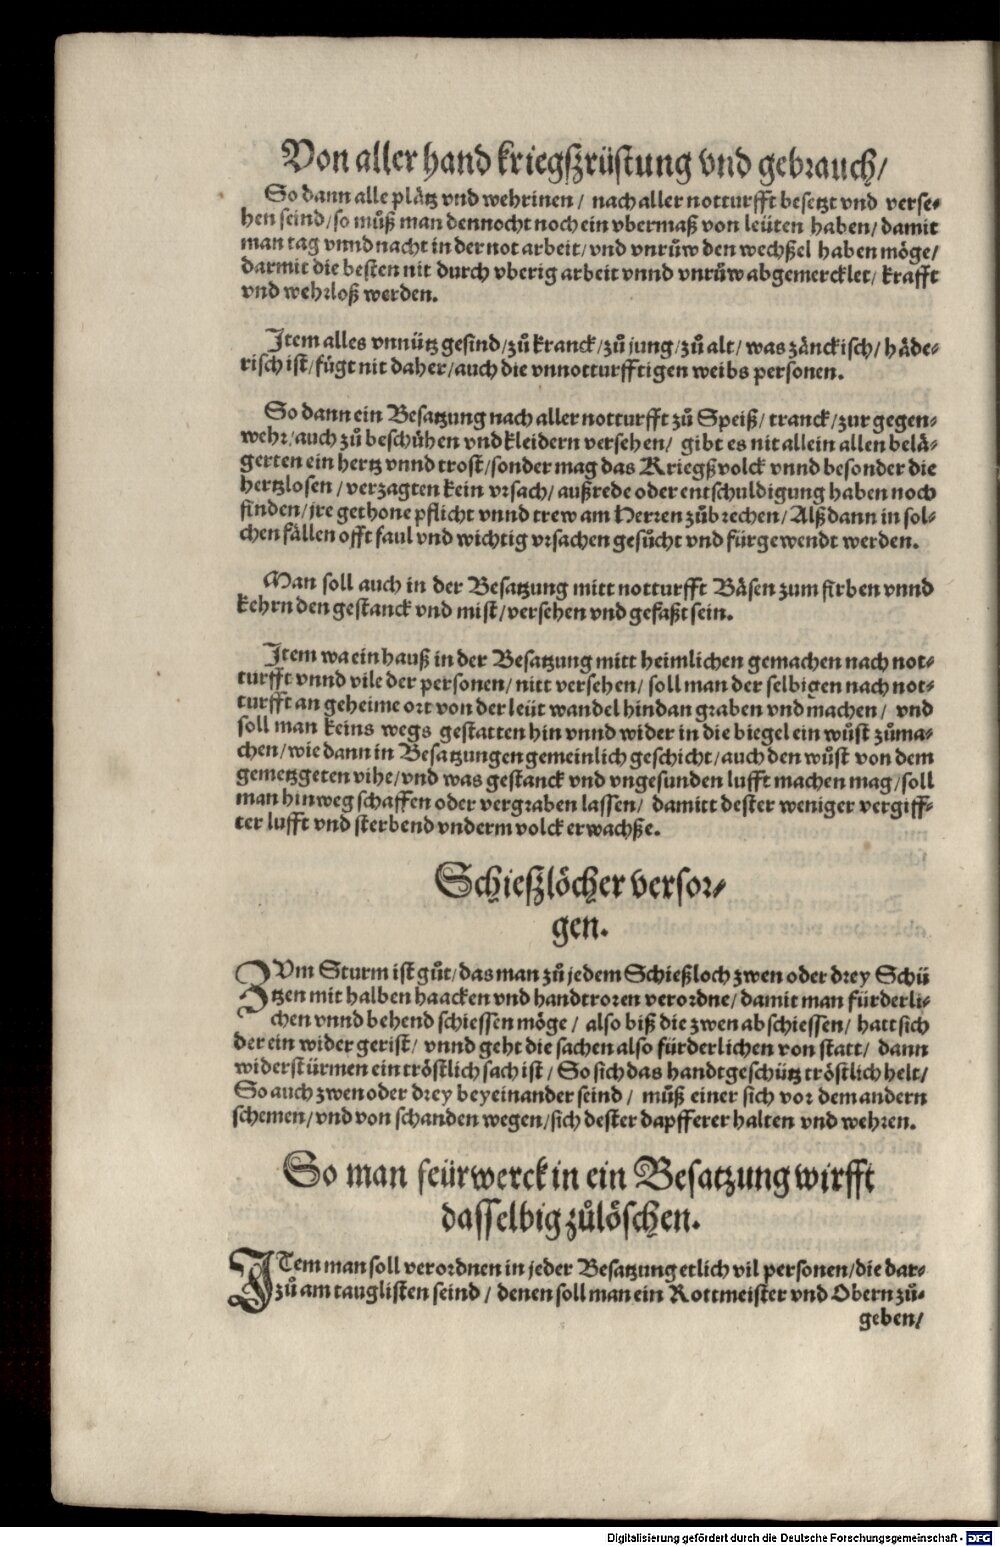 Von aller hand kriegszrüstung vnd gebrauch/
So dann alle plätz vnd wehrinen / nach aller notturfft besetzt vnd verse⸗
hen seind/so můß man dennocht noch ein vbermaß von leüten haben/ damit
man tag vnnd nacht in der not arbeit/ vnd vnrůw den wechßel haben möge/
darmit die besten nit durch vberig arbeit vnnd vnrůw abgemercklet/ krafft
vnd wehrloß werden.
Item alles vnnütz gesind/zů kranck/zů jung/zů alt/ was zänckisch/ häde⸗
risch ist/fügt nit daher/auch die vnnotturfftigen weibs personen.
So dann ein Besatzung nach aller notturfft zů Speiß/ tranck/zur gegen⸗
wehr/auch zů beschühen vnd kleidern versehen/ gibt es nit allein allen belä⸗
gerten ein hertz vnnd trost/sonder mag das Kriegßvolck vnnd besonder die
hertzlosen / verzagten kein vrsach/ außrede oder entschuldigung haben noch
finden/jre gethone pflicht vnnd trew am Herren zůbrechen/Alß dann in sol⸗
chen fällen offt faul vnd wichtig vrsachen gesůcht vnd fürgewendt werden.
Man soll auch in der Besatzung mitt notturfft Bäsen zum firben vnnd
kehrn den gestanck vnd mist/versehen vnd gefaßt sein.
Item wa ein hauß in der Besatzung mitt heimlichen gemachen nach not⸗
turfft vnnd vile der personen/ nitt versehen/ soll man der selbigen nach not⸗
turfft an geheime ort von der leüt wandel hindan graben vnd machen/ vnd
soll man keins wegs gestatten hin vnnd wider in die biegel ein wůst zůma⸗
chen/wie dann in Besatzungen gemeinlich geschicht/auch den wůst von dem
gemetzgeten vihe/vnd was gestanck vnd vngesunden lufft machen mag/soll
man hinweg schaffen oder vergraben lassen/ damitt dester weniger vergiff⸗
ter lufft vnd sterbend vnderm volck erwachße.
Schieszlöcher versor⸗
gen.
ZVm Sturm ist gůt/das man zů jedem Schießloch zwen oder drey Schü
tzen mit halben haacken vnd handtroren verordne/damit man fürderli⸗
chen vnnd behend schiessen möge / also biß die zwen abschiessen/ hatt sich
der ein wider gerist/ vnnd geht die sachen also fürderlichen von statt/ dann
widerstürmen ein tröstlich sach ist / So sich das handtgeschütz tröstlich helt/
So auch zwen oder drey beyeinander seind / můß einer sich vor dem andern
schemen/vnd von schanden wegen/sich dester dapfferer halten vnd wehren.
So man feürwerck in ein Besatzung wirfft
dasselbig zůlöschen.
ITem man soll verordnen in jeder Besatzung etlich vil personen/die dar⸗
zů am tauglisten seind / denen soll man ein Rottmeister vnd Obern zů⸗
geben/
Digitalisierung gefördert durch die Deutsche Forschungsgemeinschaft - DFG